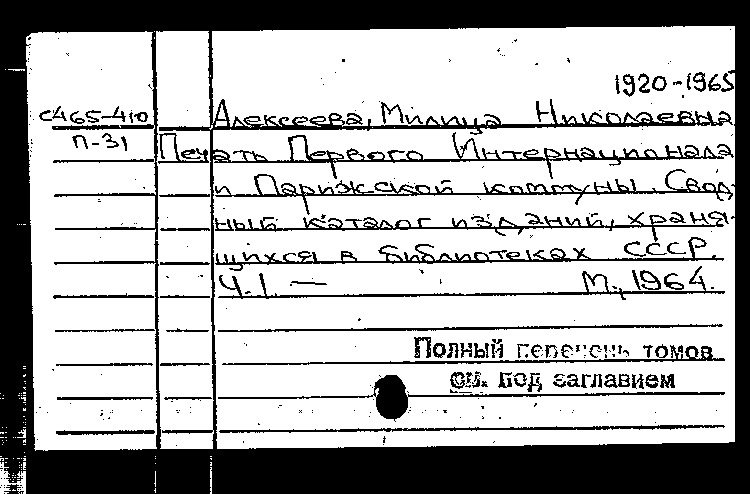 1920-1965
с465-410 Алексеева, Милица Николаевна
П-31 Печать Первого Интернационала
и Парижской коммуны. Свод-
ный каталог изданий, храня-
щихся в библиотеках СССР.
Ч.1. — М., 1964.
Полный перечень томов
см. под заглавием